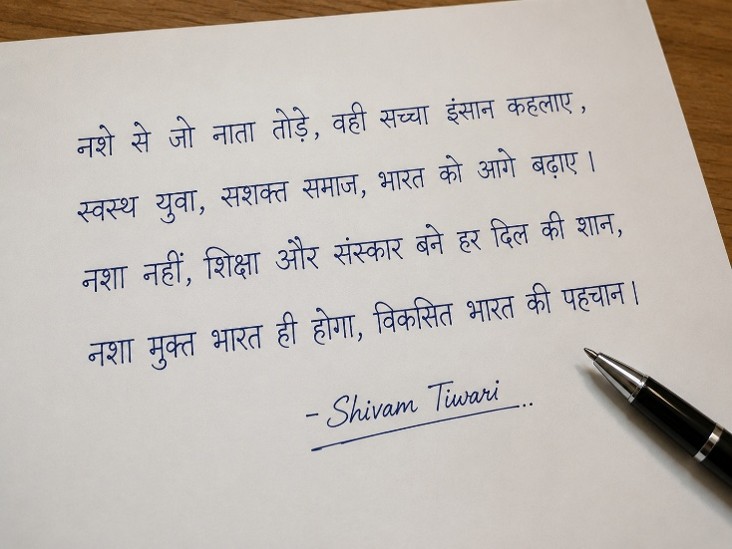 नशे से जो नाता तोड़े, वही सच्चा इंसान कहलाए,
स्वस्थ युवा, सशक्त समाज, भारत को आगे बढ़ाए।
नशा नहीं, शिक्षा और संस्कार बने हर दिल की शान,
नशा मुक्त भारत ही होगा, विकसित भारत की पहचान।
- Shivam Tiwari..